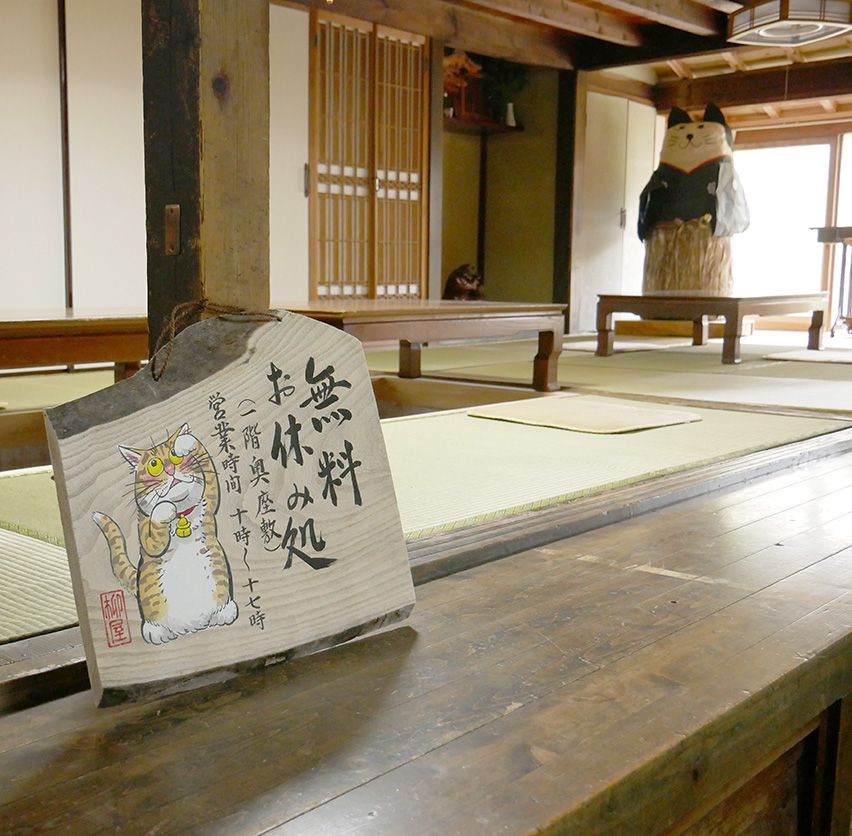 無料
お休み処
(一階奥座敷)
営業時間 十時〜十七時
柳屋